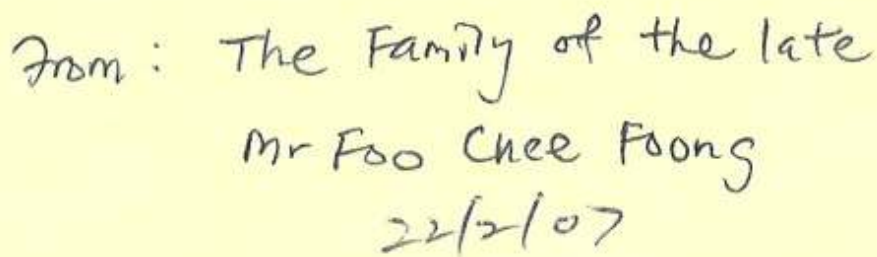 From: The Family of the late
Mr Foo Chee Foong
22/2/07